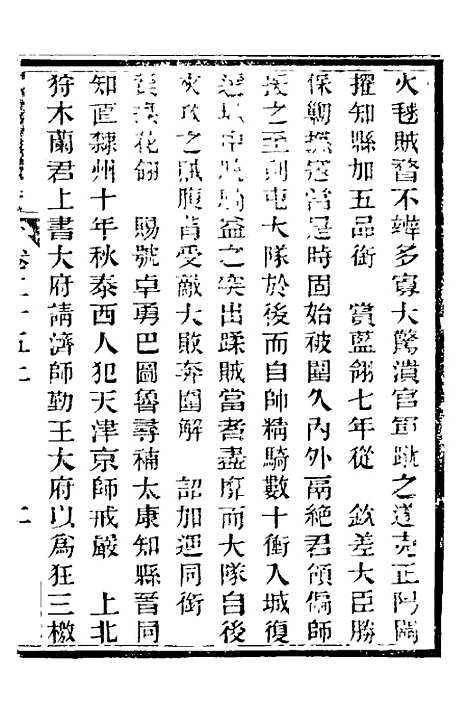 火毬賊瞀不辨多寡大驚潰官軍蹴之遂克正陽關
擢知縣加五品銜 賞藍翎七年從 欽差大臣勝
保勦撫寇當是時固始被圍久內外鬲絕君領偏師
援之至則屯大隊於後而自帥精騎數十衝入城復
選城中驍騎益之突出蹂賊當者盡靡而大隊自後
夾攻之賊腹背受敵大敗奔圍解 詔加運同銜
賞換花翎 賜號卓勇巴圖魯尋補太康知縣晉同
知直隸州十年秋泰西人犯天津京師戒嚴 上北
狩木蘭君上書大府請濟師勤王大府以為狂三檄
卷二十五上 二